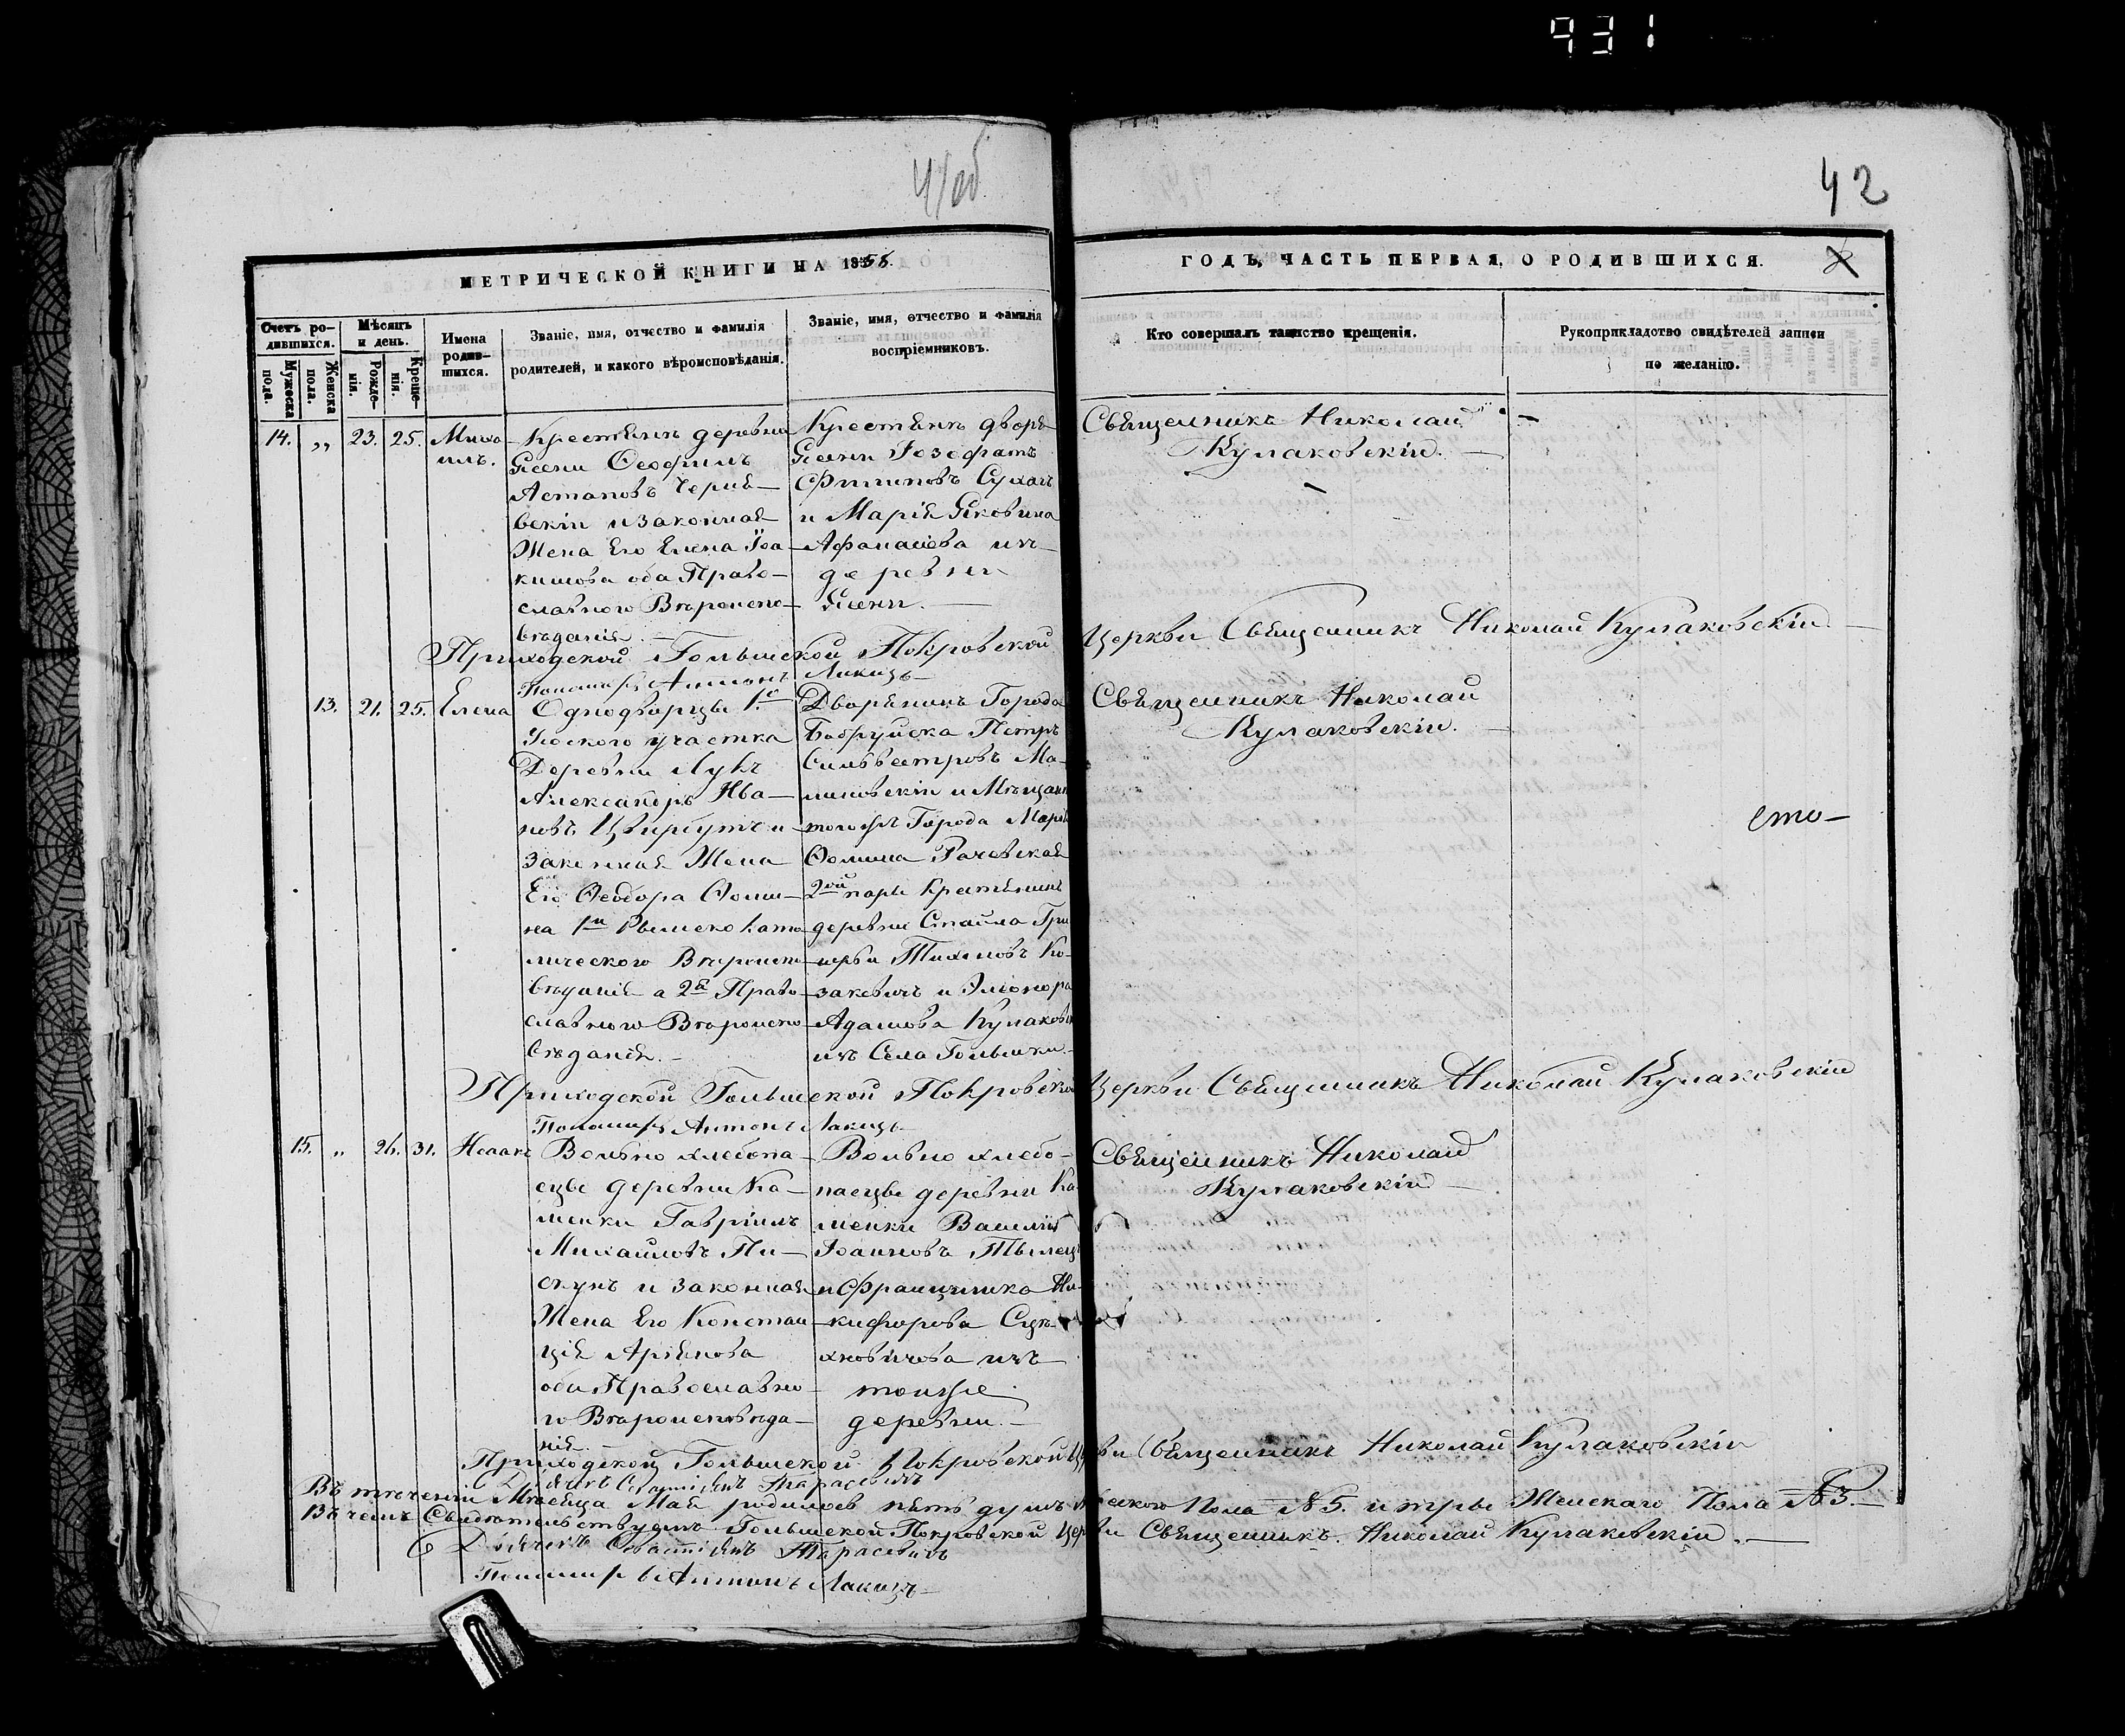 931
41об.
42
МЕТРИЧЕСКОЙ КНИГИ НА 1855
ГОДЪ, ЧАСТЬ ПЕРВАЯ, О РОДИВШИХСЯ.
Счетъ ро-
дившихся.
Мужеска
пола.
Женска
пола.
Мѣсяцъ
и день.
Рожде-
нія.
Креще-
нія.
Имена
родив-
шихся.
Званіе, имя, отчество и фамилія
родителей, и какого вѣроисповѣданія.
Званіе, имя, отчество и фамилія
воспріемниковъ.
Кто совершалъ таинство крещенія.
Рукоприкладство свидѣтелей записи
по желанію.
14. „ 23. 25. Миха-
илъ.
Крестянинъ деревни
Ясени Ѳеофилъ
Астаповъ Черня-
вскіи и законная
Жена Его Елена Іоа-
кимова оба Право-
славного Вѣроиспо-
вѣданія.
Ясени Іозофатъ
Филиповъ Сухач
и Марія Яковина
Афанасіева изъ
деревни
Ясени.
Священникъ Николай
Кулаковскій.
Приходской Гольшской Покровской Церкви Священникъ Николай Кулаковскій
Пономарь Антонъ Лакизъ
13. 21. 25. Елена
Однодворцы 1.го
участка
Деревни Лукъ
Александръ Ива-
новъ и
законная Жена
Его Ѳеодора Ѳоми-
на 1й Римско Като-
лического Вѣроиспо-
вѣданія а 2я Право-
славного Вѣроиспо-
вѣданія.
Дворянинъ Города
Бобруйска Петръ
Сильвестровъ Ма-
линовскій и Мѣщан
того же Города Марія
Ѳомина Рачевская
2ой пары Крестянинъ
деревни Стайла Гри-
Тихоновъ Ко-
закевичъ и Элеонора
Адамова Кулаковск
изъ Села Гольшки.
Священникъ Николай
Кулаковскій.
сто-
Приходской Гольшской Покровской Церкви Священникъ Николай Кулаковскій
Пономарь Антонъ Лакизъ
15. „ 26. 31. Исаакъ
Вольно хлебопа-
ецъ деревни Ка-
менки Гавріилъ
Михайловъ Пи-
скунъ и законная
Жена Его Констан-
ція Аріянова
оба Православно-
го Вѣроисповѣда-
нія.
Вольно хлебо-
паецъ деревни Ка
менки Василій
Іоанновъ
и Францишка Ни-
кифорова
изъ
тойже
деревни.
Священникъ Николай
Кулаковскій
Приходской Гольшской Покровской Церкви Священникъ Николай Кулаковскій
Дьячекъ Севастіянъ Тарасевичъ
Въ теченіи Мѣсяца Мая родилось пять душъ Мужеского Пола №5. и три Женскаго Пола №3.
Въ чемъ Свидетельствуетъ Гольшской Покровской Церкви Священникъ Николай Кулаковскій.
Дьячекъ Севастіянъ Тарасевичъ
Пономарь Антонъ Лакизъ